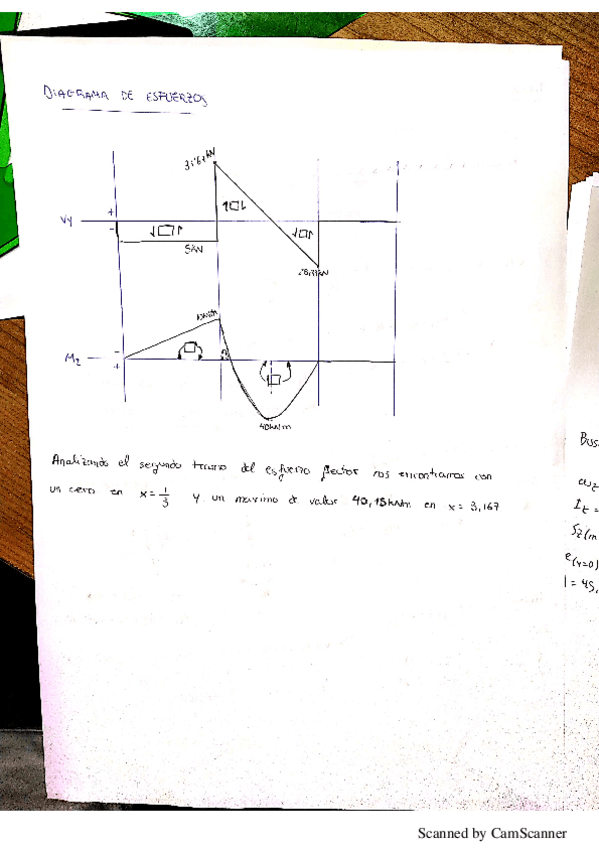 DIAGRAMA DE ESFUERZOS
31'67kN
Vy
+
-
5kN
28,33kN
Mz
-
+
40kNm
Analizando el segundo tramo del esfuerzo flector nos encontramos con
un cero en x = 1/3 y un maximo de valor 40,13kNm en x = 3,167
Bus
ωz
It =
Sz(m
e(y=0)
I = 45,
Scanned by CamScanner